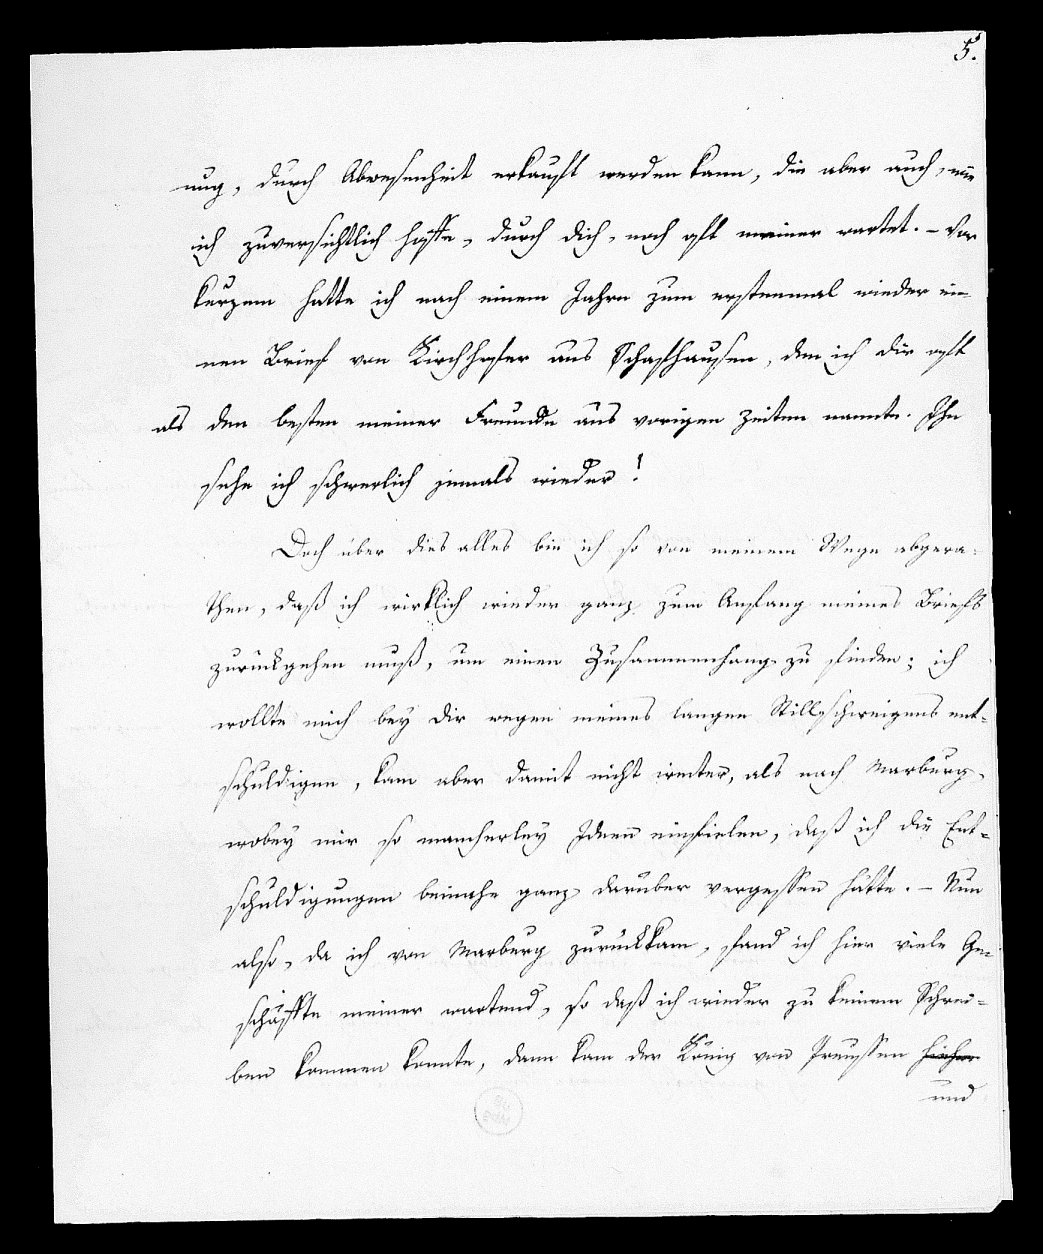 5.
nug, durch Abwesenheit erkauft werden kann, die aber auch, wie
ich zuversichtlich hoffe, durch dich, noch oft meiner wartet. – Vor
kurzem hatte ich nach einem Jahre zum erstenmal wieder ei-
nen Brief von Kirchhofer aus Schafhausen, den ich dir oft
als den besten meiner Freunde aus vorigen Zeiten nannte. Ihn
sehe ich schwerlich jemals wieder!
Doch über dies alles bin ich so von meinem Wege abgera-
then, daß ich wirklich wieder ganz zum Anfang meines Briefs
zurückgehen muß, um einen Zusammenhang zu finden; ich
wollte mich bey dir wegen meines langen Stillschweigens ent-
schuldigen, kam aber damit nicht weiter, als nach Marburg,
wobey mir so mancherley Ideen einfielen, daß ich die Ent-
schuldigungen beinahe ganz darüber vergessen hätte. – Nun
also, da ich von Marburg zurückkam, fand ich hier viele Ge-
schäffte meiner wartend, so daß ich wieder zu keinem Schrei-
ben kommen konnte, dann kam der König von Preussen hieher
und